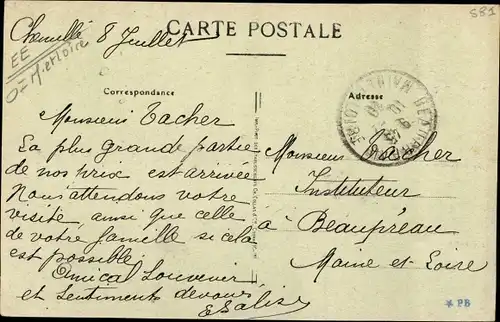 CARTE POSTALE
Chemillé 8 Juillet
EE
O = M. et Loire
581
Correspondance
Adresse
Monsieur Tacher
La plus grande partie
de nos prix est arrivée
Nous attendons votre
visite ainsi que celle
de votre famille si cela
est possible.
Amical Souvenir
et Sentiments dévoués
Monsieur Tacher
Instituteur
à Beaupréau
Maine-et-Loire
* PB